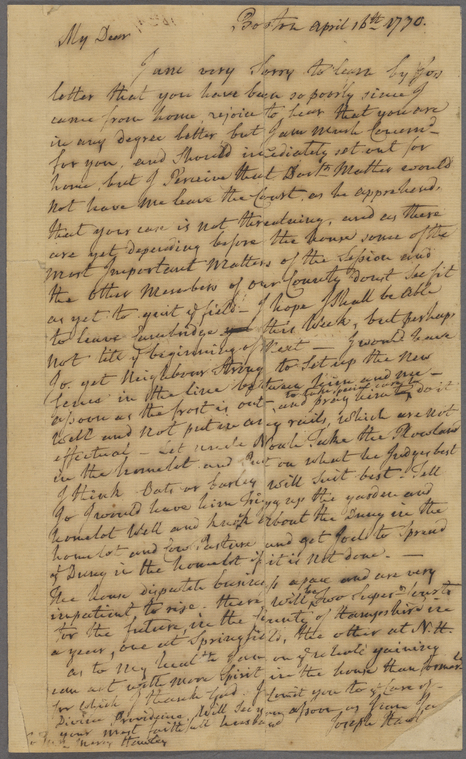 Boston April 16th 1770.
My Dear
I am very Sorry to learn by Jos
letter that you have been so poorly since I
came from home, rejoice to hear that you are
in any degree better but I am much Concernd
for you, and Should imediately set out for
home, but I Perceive that Doctr Mather would
not have me leave the Court, as he apprehends
that your case is not threatning, and as there
are yet depending before the house some of the
most Important Matters of the Session and
the other Members of our County dont See fit
as yet to quit ye field I hope I Shall be Able
to leave Cambridge this Week, but perhaps
not till ye beginning of Next — I would have
Jo get Neighbour Strong to Set up the New
fence in the line between him and me
as soon as the frost is out and pray him to do it
to take good care
well and not put in any rails, which are not
effectual — let uncle Noah take the Plowland
in the homelot and Put on what he judges best
I think Oats or barley will Suit best. Tell
Jo I would have him Digg up the garden and
homelot Well and knock about the Dung in the
homelot and Cow Pasture and get Joel to Spread
ye Dung in the homelot if it is not done. —
The house dispatch business apace and are very
impatient to rise. there Will be two Superr Courts
for the future, in the County of Hampshire in
a year, one at Springfield, & the other at N.H.
as to My health I am on ye whole gaining
can act with more Spirit in the house than formerly
for which I thank God. I Comit you to ye Care of
Divine Providence, Will See you as soon as I can I am
your most faithfull husband
Joseph Hawley
Mercy Hawley